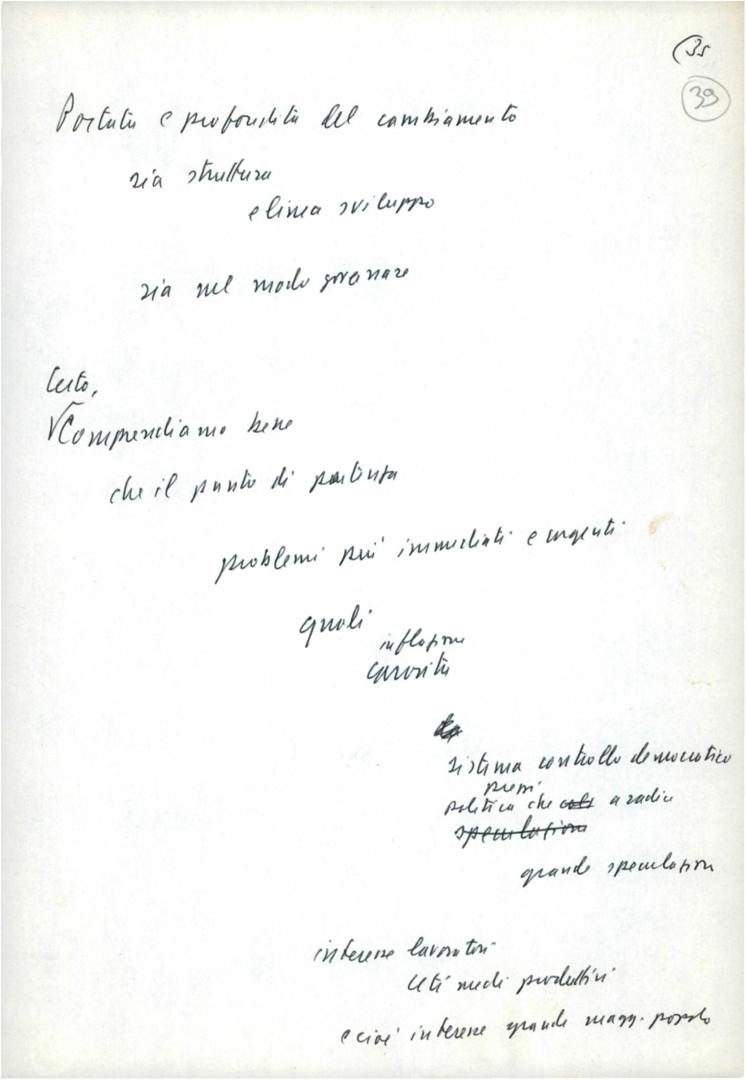 (35
39
Portata e profondità del cambiamento
sia struttura
e linea sviluppo
sia nel modo governare
Certo,
Comprendiamo bene
che il punto di partenza
problemi più immediati e urgenti
quali
inflazione
carovita
sistema controllo democratico
prezzi
politica che colp a radice
speculazione
grande speculazion
interesse lavoratori
ceti medi produttivi
e cioè interesse grande magg. popolo